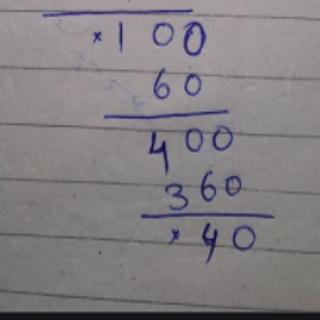 ×100
60
400
360
×40